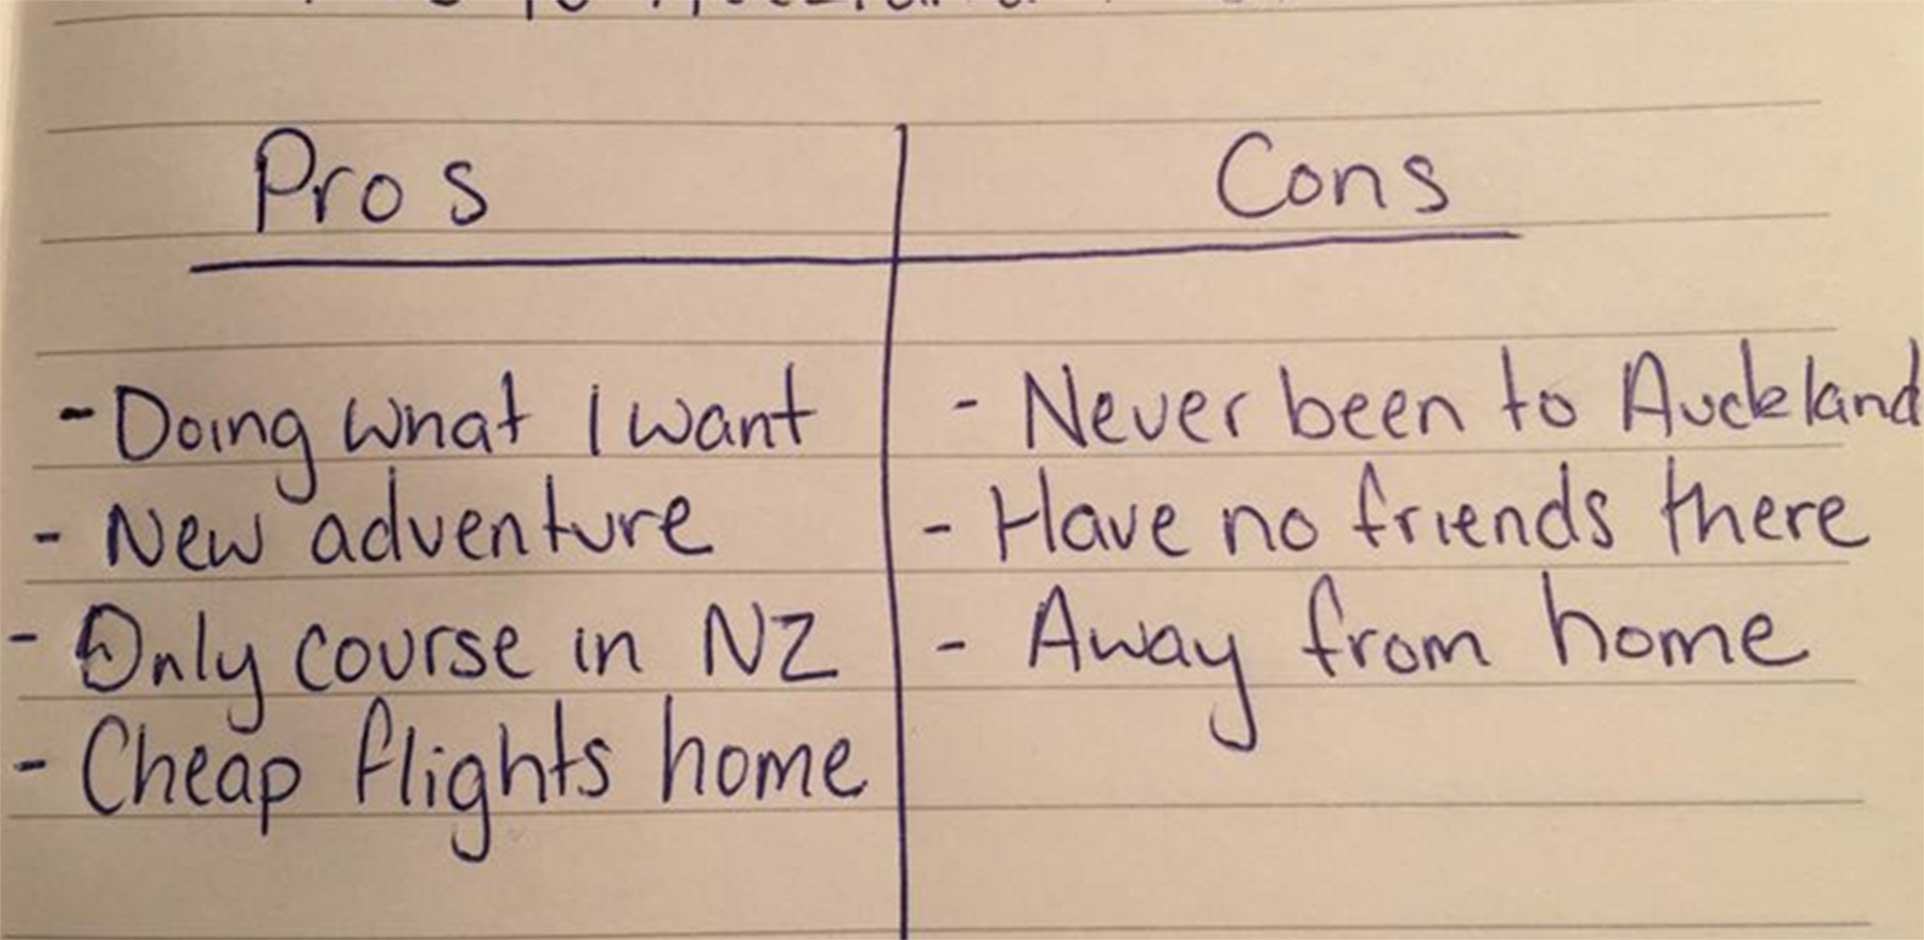 to Auckland
Pros
Cons
- Doing what I want
- New adventure
- Only course in NZ
- Cheap flights home
- Never been to Auckland
- Have no friends there
- Away from home